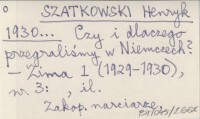 SZATKOWSKI Henryk
1930... Czy i dlaczego
przegraliśmy w Niemczech?
– Zima 1 (1929-1930),
nr 3: , il.
Zakop. narciarze.